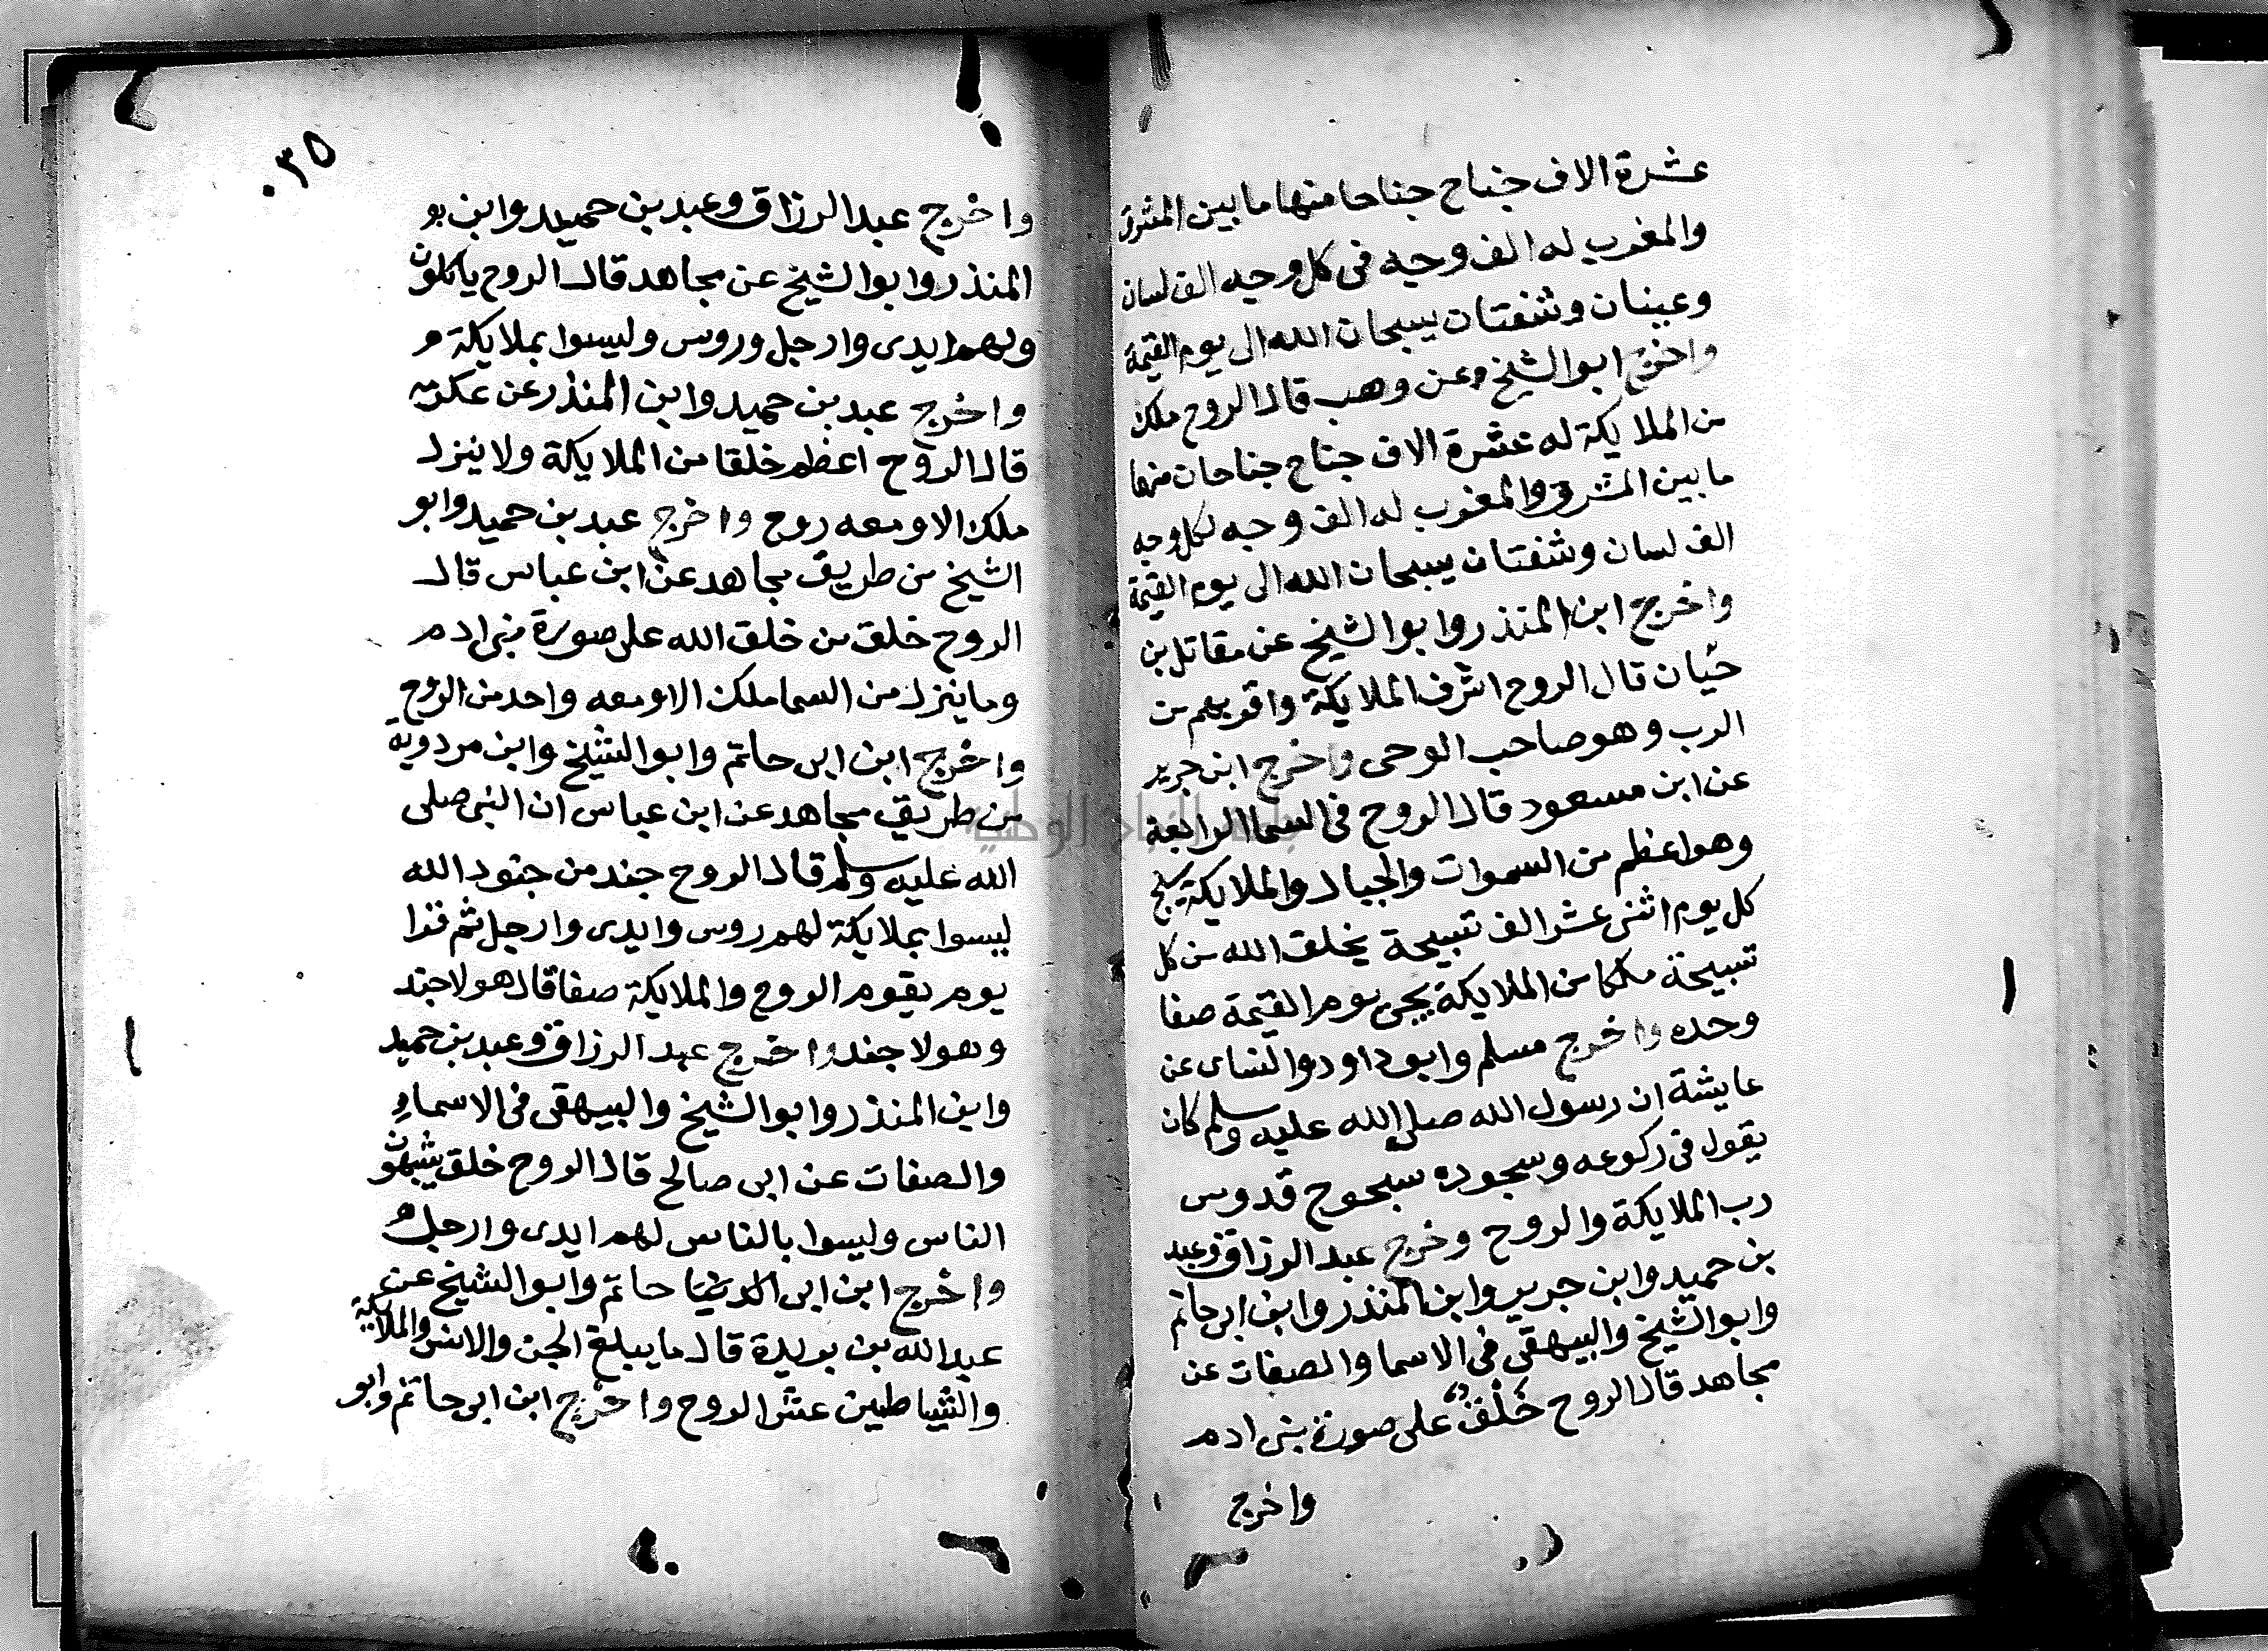 عشرة الاف جناح جناحا منها ما بين المشرق
والمغرب له الف وجه في كل وجه الف لسان
وعينان وشفتان يسبحان الله الى يوم القيمة
واخرج ابو الشيخ عن وهب قال الروح ملك
من الملايكة له عشرة الاف جناح جناحان منها
ما بين المشرق والمغرب له الف وجه لكل وجه
الف لسان وشفتان يسبحان الله الى يوم القيمة
واخرج ابن المنذر وابو الشيخ عن مقاتل بن
حيان قال الروح اشرف الملايكة واقربهم من
الرب وهو صاحب الوحى واخرج ابن جرير
عن ابن مسعود قال الروح في السما الرابعة
وهو اعظم من السموات والجبال والملايكة يسبح
كل يوم اثنى عشر الف تسبيحة يخلق الله من كل
تسبيحة ملكا من الملايكة يجى يوم القيمة صفا
وحده واخرج مسلم وابو داود والنساى عن
عايشة ان رسول الله صلى الله عليه وسلم كان
يقول في ركوعه وسجوده سبحوح قدوس
رب الملايكة والروح وخرج عبد الرزاق وعبد
بن حميد وابن جرير وابن المنذر وابن ابى حاتم
وابو الشيخ والبيهقى في الاسما والصفات عن
مجاهد قال الروح خلق على صورة بنى ادم
واخرج
٣٥
واخرج عبد الرزاق وعبد بن حميد وابن
المنذر وابو الشيخ عن مجاهد قال الروح ياكلون
ولهم ايدى وارجل وروس وليسوا بملايكة
واخرج عبد بن حميد وابن المنذر عن عكرمة
قال الروح اعظم خلقا من الملايكة ولا ينزل
ملك الا ومعه روح واخرج عبد بن حميد وابو
الشيخ من طريق مجاهد عن ابن عباس قال
الروح خلق من خلق الله على صورة بنى ادم
وما ينزل من السما ملك الا ومعه واحد من الروح
واخرج ابن ابى حاتم وابو الشيخ وابن مردويه
من طريق مجاهد عن ابن عباس ان النبى صلى
الله عليه وسلم قال الروح جند من جنود الله
ليسوا بملايكة لهم روس وايدى وارجل ثم قرا
يوم يقوم الروح والملايكة صفا قال هولا جند
وهولا جند واخرج عبد الرزاق وعبد بن حميد
وابن المنذر وابو الشيخ والبيهقى في الاسما و
والصفات عن ابى صالح قال الروح خلق يشبهون
الناس وليسوا بالناس لهم ايدى وارجل
واخرج ابن ابى حاتم وابو الشيخ عن
عبد الله بن بريدة قال ما يبلغ الجن والانس والملايكة
والشياطين عشر الروح واخرج ابن ابى حاتم وابو